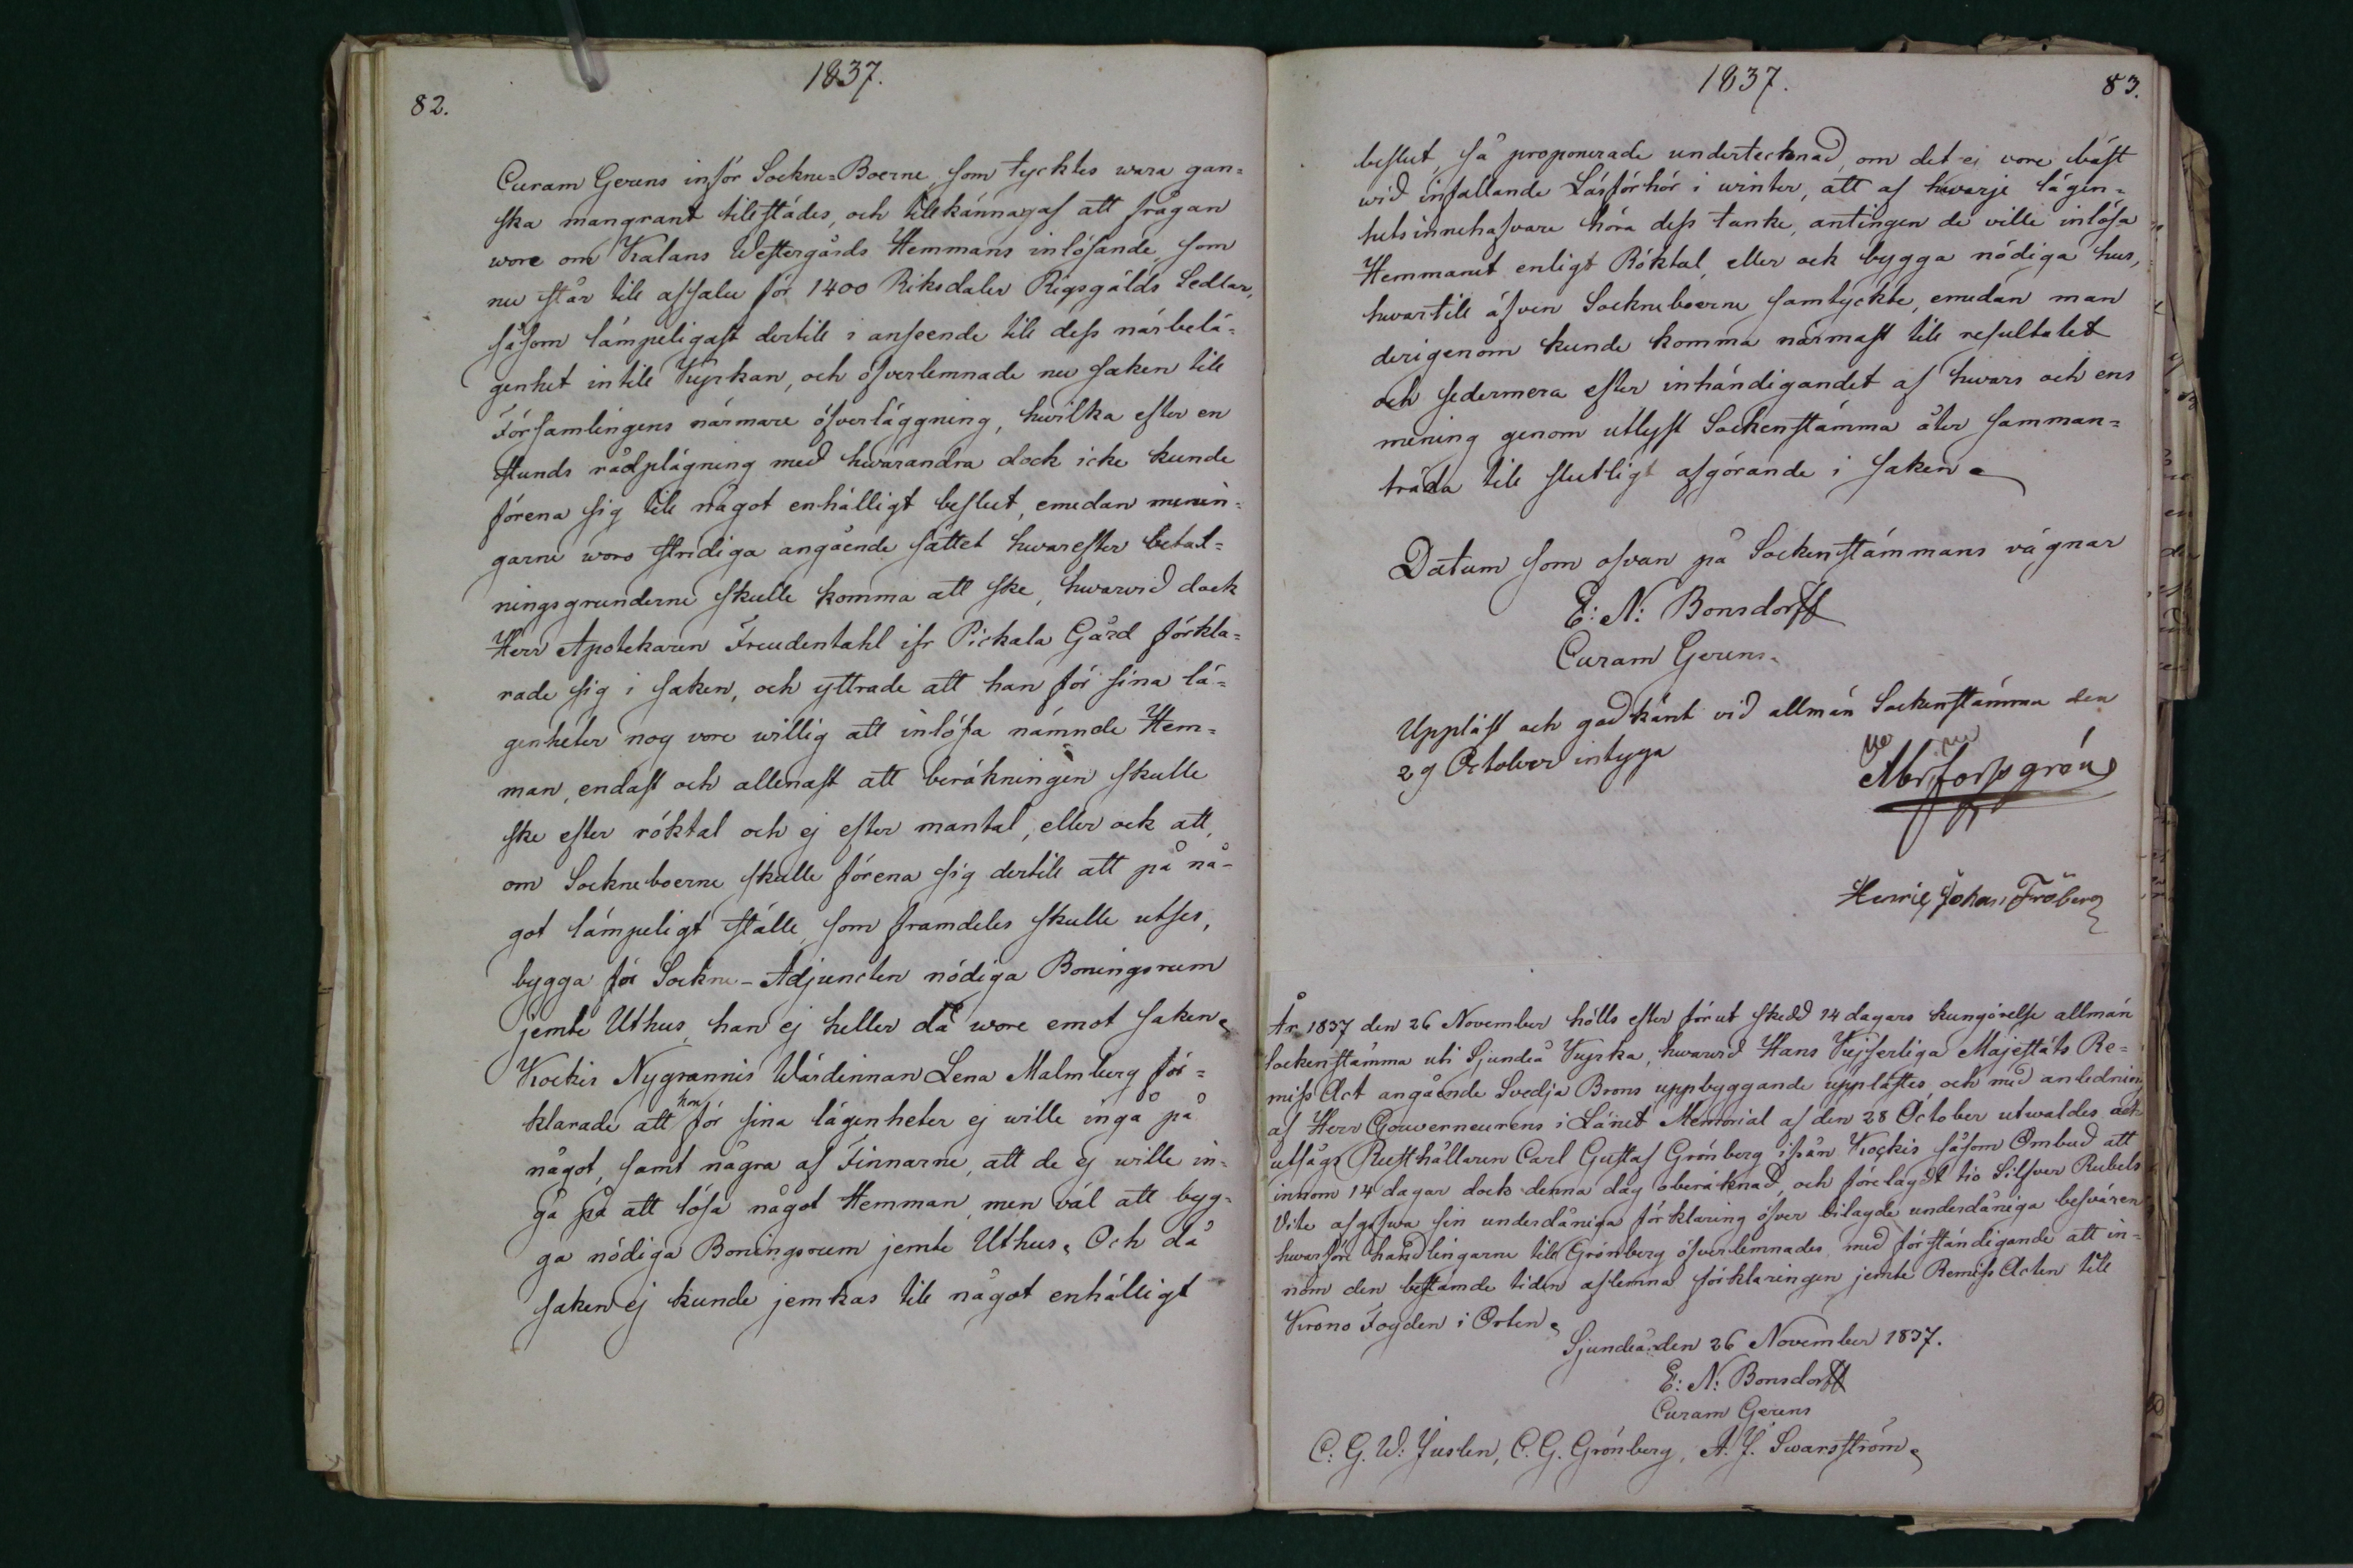 1837.
82.
Curam Gerens inför Sockne=Boerne, som tycktes wara gan=
ska mangrant tillstädes, och tillkännagaf att frågan
wore om Kalans Westergårds Hemmans inlösande, som
nu står till afsalu för 1400 Riksdaler Rigsgälds Sedlar,
såsom lämpeligast dertill i anseende till dess närbelä=
genhet intill Kyrkan, och öfverlemnade nu saken till
Församlingens närmare öfverläggning, hwilka efter en
stunds rådplägning med hwarandra dock icke kunde
förena sig till något enhälligt beslut, emedan menin=
garne woro stridiga angående sättet hwarefter betal=
ningsgrunderne skulle komma att ske, hwarvid dock
Herr Apotekaren Freudentahl ifr Pickala Gård förkla=
rade sig i saken, och yttrade att han för sina lä=
genheter nog vore willig att inlösa nämnde Hem=
man, endast och allenast att beräkningen skulle
ske efter röktal och ej efter mantal, eller ock att,
om Sockneboerne skulle förena sig dertill att på nå=
got lämpeligt ställe, som framdeles skulle utses,
bygga för Sockne-Adjuncten nödiga Boningsrum
jemte Uthus, han ej heller då wore emot saken.
Kockis Nygrannis Wärdinnan Lena Malmberg för=
klarade att hon för sina lägenheter ej wille ingå på
något, samt några af Finnarne, att de ej wille in=
gå på att lösa något Hemman, men väl att byg=
ga nödiga Boningsrum jemte Uthus. Och då
saken ej kunde jemkas till något enhälligt
1837.
83.
beslut, så proponerade undertecknad, om det ej vore bäst
wid infallande Läsförhör i winter, att af hwarje lägen=
hets innehafvare höra dess tanke, antingen de ville inlösa
Hemmanet enligt Röktal, eller ock bygga nödiga hus,
hwartill äfven Sockneboerne samtyckte, emedan man
derigenom kunde komma närmast till resultatet
och sedermera efter inhändigandet af hwars och ens
mening genom utlyst Sockenstämma åter samman=
träda till slutligt afgörande i saken.
Datum som ofvan på Sockenstämmans vägnar
E: N: Bonsdorff
Curam Gerens.
Uppläst och godkänt vid allmän Sockenstämma den
29 October intyga
Abr: Forssgrén
Henric Johan Fröberg
År 1837 den 26 November hölls efter förut skedd 14 dagars kungörelse allmän
Sockenstämma uti Sjundeå Kyrka, hwarwid Hans Kejserliga Majestäts Re=
miss Act angående Svedja Brons uppbyggande upplästes och med anledning
af Herr Gouverneurens i Länet Memorial af den 28 October utwaldes och
utsågs Rusthållaren Carl Gustaf Grönberg ifrån Kockis såsom Ombud att
innom 14 dagar dock denna dag oberäknad, och förelagdt tio Silfver Rubels
Vite afgifwa sin underdåniga förklaring öfver bilagde underdåniga besvären
hwarföre handlingarne till Grönberg öfverlemnades med förständigande att in=
nom den bestämde tiden aflemna förklaringen jemte Remiss Acten till
Krono Fogden i Orten.
Sjundeå den 26 November 1837.
E: N: Bonsdorff
Curam Gerens
C. G. W: Juslen, C. G. Grönberg, A. J. Swarsström.